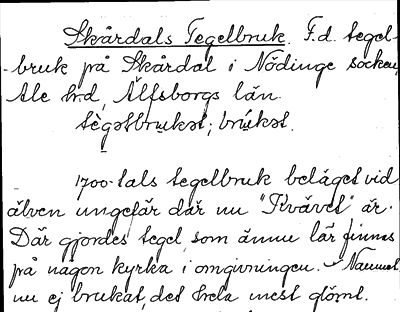 Skårdals Tegelbruk. F.d. tegel-
-bruk på Skårdal i Nödinge socken,
Ale h:d, Älfsborgs län.
tègəlbrukət; brúkət.
1700-tals tegelbruk beläget vid
älven ungefär där nu "Kvävet" är.
Där gjordes tegel, som ännu lär finnas
på någon kyrka i omgivningen. Namnet
nu ej brukat, det hela mest glömt.